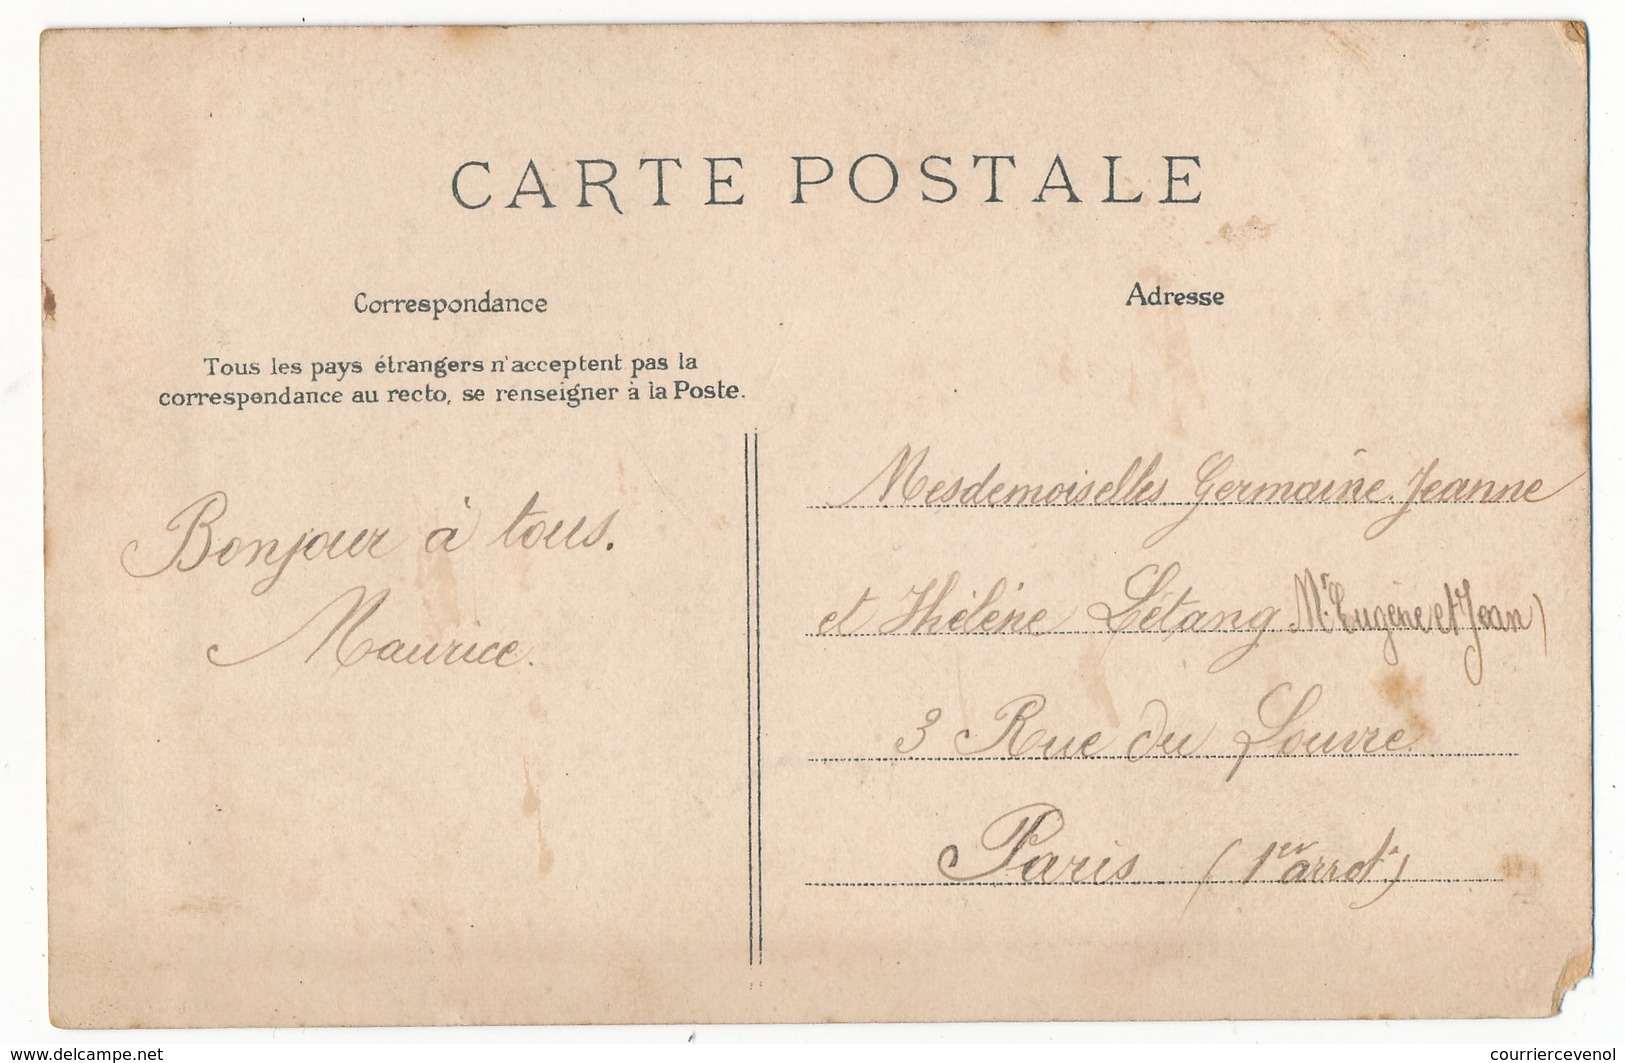 CARTE POSTALE
Correspondance
Tous les pays étrangers n'acceptent pas la
correspondance au recto, se renseigner à la Poste.
Bonjour à tous.
Maurice.
Adresse
Mesdemoiselles Germaine, Jeanne
et Hélène Létang Mr. Eugène et Jean)
3 Rue du Louvre
Paris (1er arrdt)
www.delcampe.net
courriercevenol